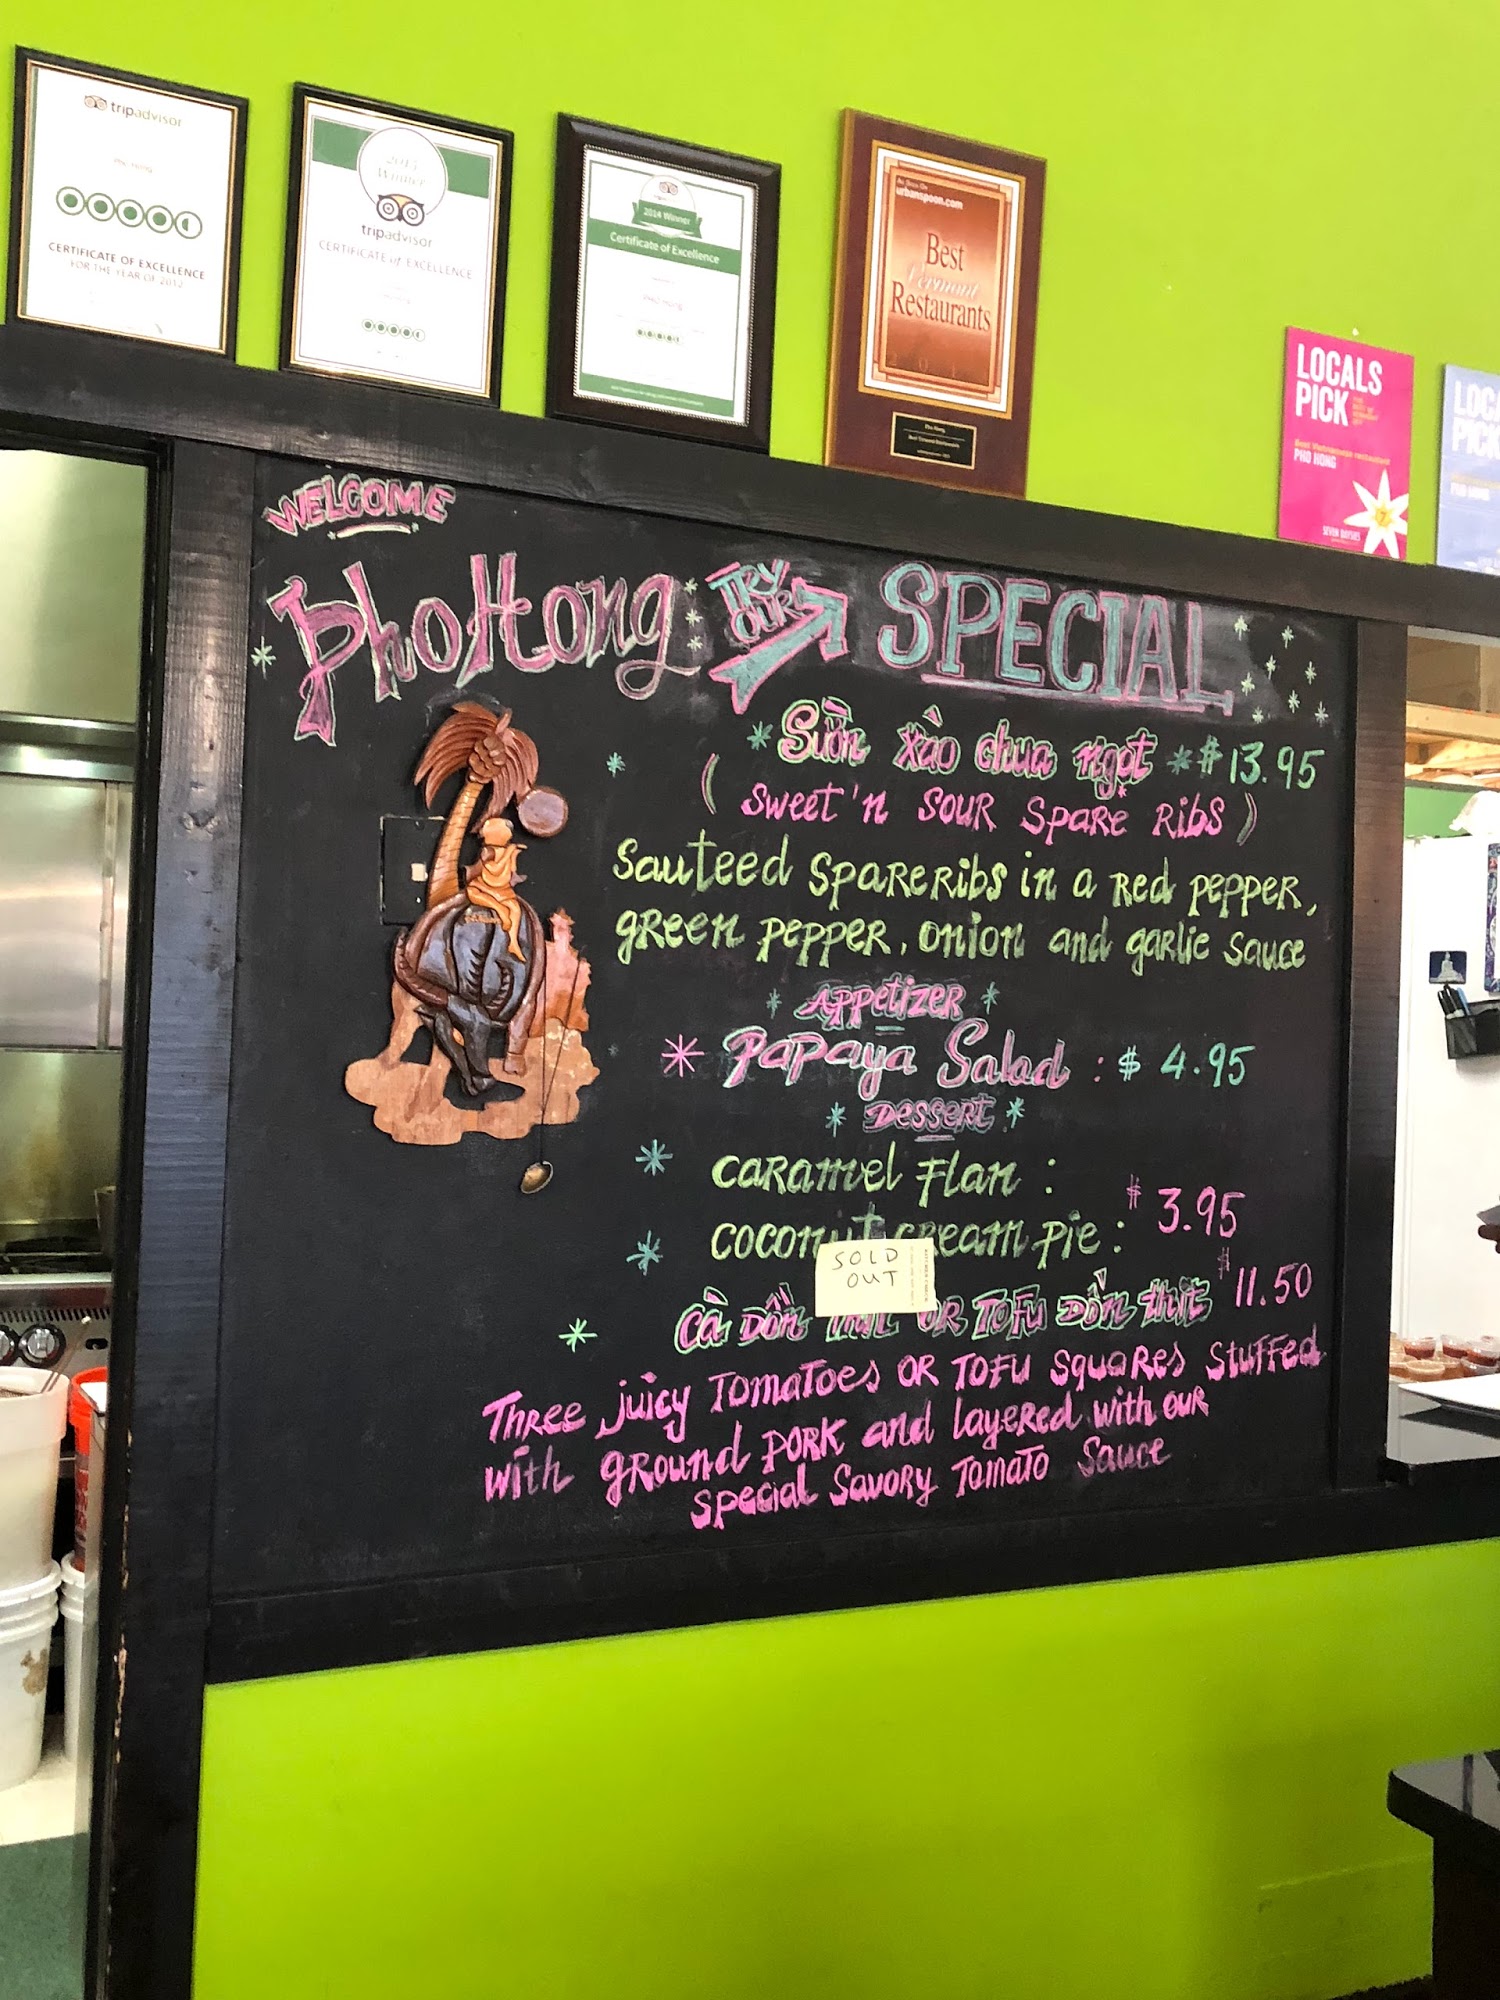 tripadvisor
Pho Hong
CERTIFICATE OF EXCELLENCE
FOR THE YEAR OF 2012
Winner
tripadvisor
CERTIFICATE of EXCELLENCE
2014 Winner
Certificate of Excellence
Pho Hong
As Seen On
urbanspoon.com
Best
Vermont
Restaurants
Pho Hong
Best Vermont Restaurants
LOCALS
PICK
Best Vietnamese restaurant
PHO HONG
SEVEN DAYS
LOCA
PICK
WELCOME
PhoHong TRY OUR SPECIAL
Sườn xào chua ngọt $13.95
(Sweet'n Sour Spare Ribs)
Sauteed Spareribs in a Red pepper,
green pepper, onion and garlic sauce
Appetizer
Papaya Salad : $ 4.95
Dessert
Caramel Flan :
$ 3.95
Coconut cream pie :
SOLD
OUT
Cà Dồn thịt OR TOFU Dồn thịt $11.50
Three juicy Tomatoes OR TOFU Squares Stuffed
with ground pork and layered with our
special savory Tomato Sauce